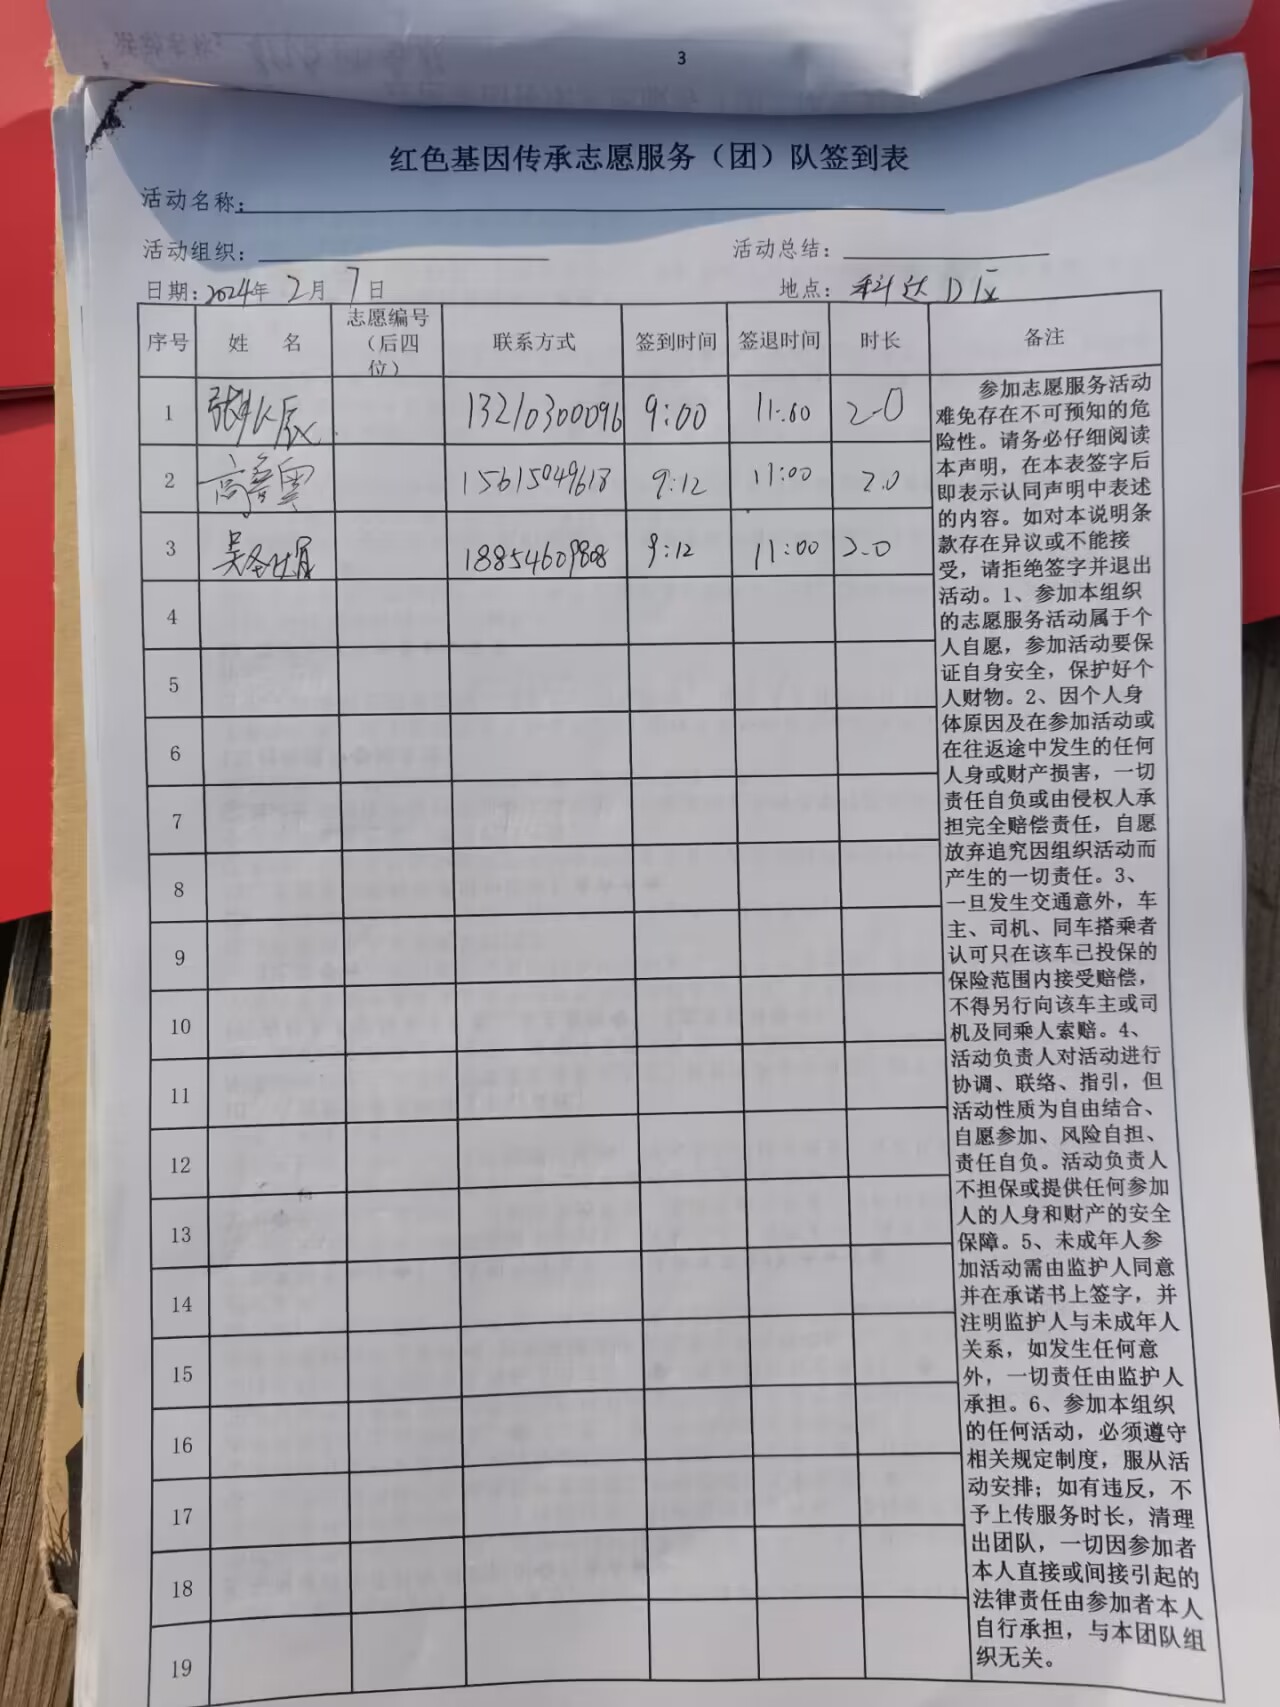 3
红色基因传承志愿服务（团）队签到表
活动名称：
活动组织： 活动总结：
日期：2024年 2月 7日 地点：科达D区
序号 姓 名 志愿编号（后四位） 联系方式 签到时间 签退时间 时长 备注
1 13210300096 9:00 11:00 2.0
2 高鲁奥 15615049618 9:12 11:00 2.0
3 18854609808 9:12 11:00 2.0
4
5
6
7
8
9
10
11
12
13
14
15
16
17
18
19
参加志愿服务活动
难免存在不可预知的危
险性。请务必仔细阅读
本声明，在本表签字后
即表示认同声明中表述
的内容。如对本说明条
款存在异议或不能接
受，请拒绝签字并退出
活动。1、参加本组织
的志愿服务活动属于个
人自愿，参加活动要保
证自身安全，保护好个
人财物。2、因个人身
体原因及在参加活动或
在往返途中发生的任何
人身或财产损害，一切
责任自负或由侵权人承
担完全赔偿责任，自愿
放弃追究因组织活动而
产生的一切责任。3、
一旦发生交通意外，车
主、司机、同车搭乘者
认可只在该车已投保的
保险范围内接受赔偿，
不得另行向该车主或司
机及同乘人索赔。4、
活动负责人对活动进行
协调、联络、指引，但
活动性质为自由结合、
自愿参加、风险自担、
责任自负。活动负责人
不担保或提供任何参加
人的人身和财产的安全
保障。5、未成年人参
加活动需由监护人同意
并在承诺书上签字，并
注明监护人与未成年人
关系，如发生任何意
外，一切责任由监护人
承担。6、参加本组织
的任何活动，必须遵守
相关规定制度，服从活
动安排；如有违反，不
予上传服务时长，清理
出团队，一切因参加者
本人直接或间接引起的
法律责任由参加者本人
自行承担，与本团队组
织无关。